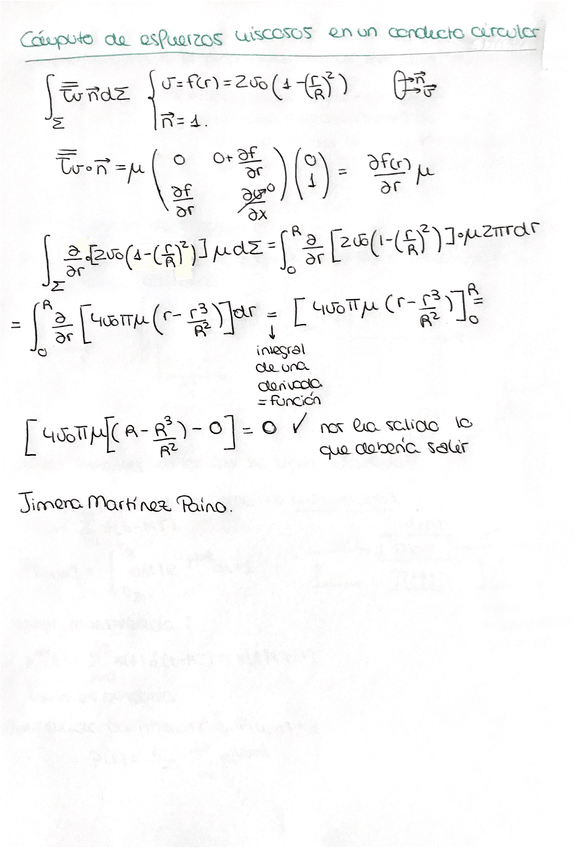 Cómputo de esfuerzos viscosos en un conducto circular
∫_Σ τ̿v n⃗ dΣ { v = f(r) = 2v₀ (1 - (r/R)²) n⃗ v⃗
n⃗ = 1.
τ̿v · n⃗ = μ ( 0 0 + ∂f/∂r ; ∂f/∂r ∂v/∂x⁰ ) ( 0 ; 1 ) = ∂f(r)/∂r μ
∫_Σ ∂/∂r · [2v₀ (1 - (r/R)²)] μ dΣ = ∫₀^R ∂/∂r [2v₀ (1 - (r/R)²)] · μ 2πr dr
= ∫₀^R ∂/∂r [4v₀πμ (r - r³/R²)] dr = [4v₀πμ (r - r³/R²)]₀^R =
↓
integral
de una
derivada
= función
[4v₀πμ [(R - R³/R²) - 0] = 0 ✓ nos ha salido lo
que debería salir
Jimena Martínez Paino.